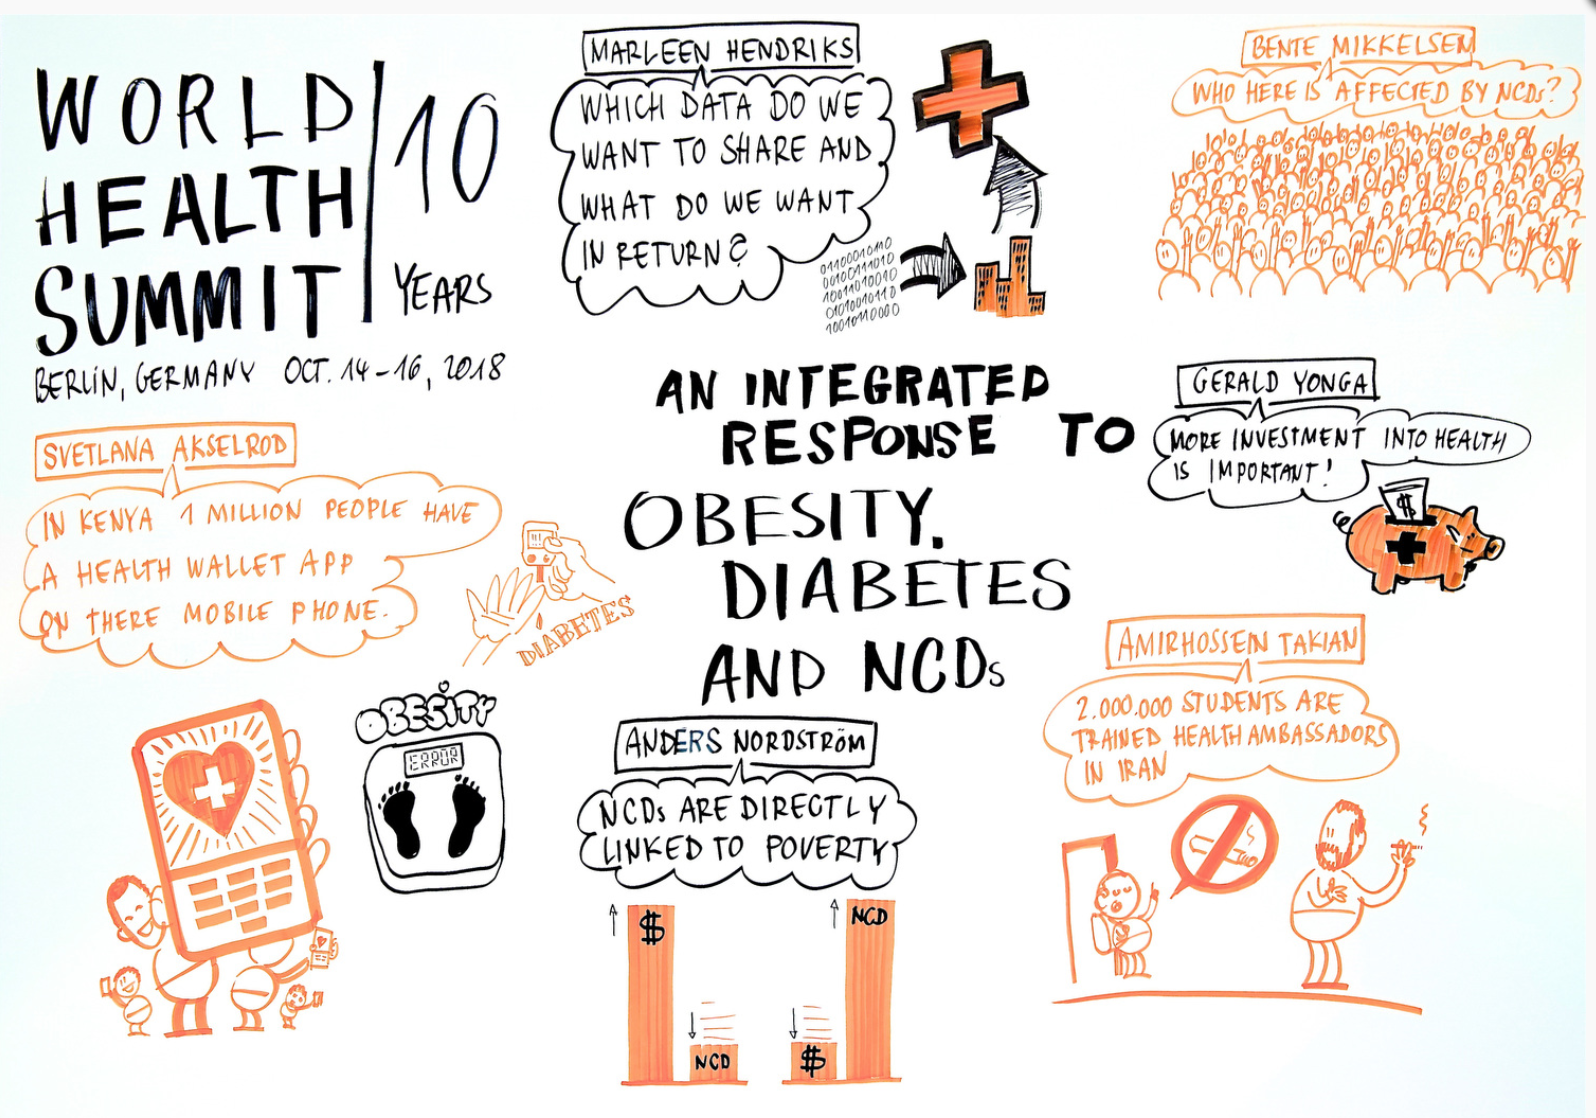 WORLD
HEALTH
SUMMIT
10
YEARS
BERLIN, GERMANY OCT. 14-16, 2018
MARLEEN HENDRIKS
WHICH DATA DO WE
WANT TO SHARE AND
WHAT DO WE WANT
IN RETURN?
0110001010
0010011010
1001101001
0101001010
10010110000
BENTE MIKKELSEN
WHO HERE IS AFFECTED BY NCDs?
AN INTEGRATED
RESPONSE TO
OBESITY.
DIABETES
AND NCDs
GERALD YONGA
MORE INVESTMENT INTO HEALTH
IS IMPORTANT!
$
SVETLANA AKSELROD
IN KENYA 1 MILLION PEOPLE HAVE
A HEALTH WALLET APP
ON THERE MOBILE PHONE.
DIABETES
OBESITY
ERROR
ANDERS NORDSTRÖM
NCDs ARE DIRECTLY
LINKED TO POVERTY
$
NCD
$
NCD
AMIRHOSSEIN TAKIAN
2.000.000 STUDENTS ARE
TRAINED HEALTH AMBASSADORS
IN IRAN